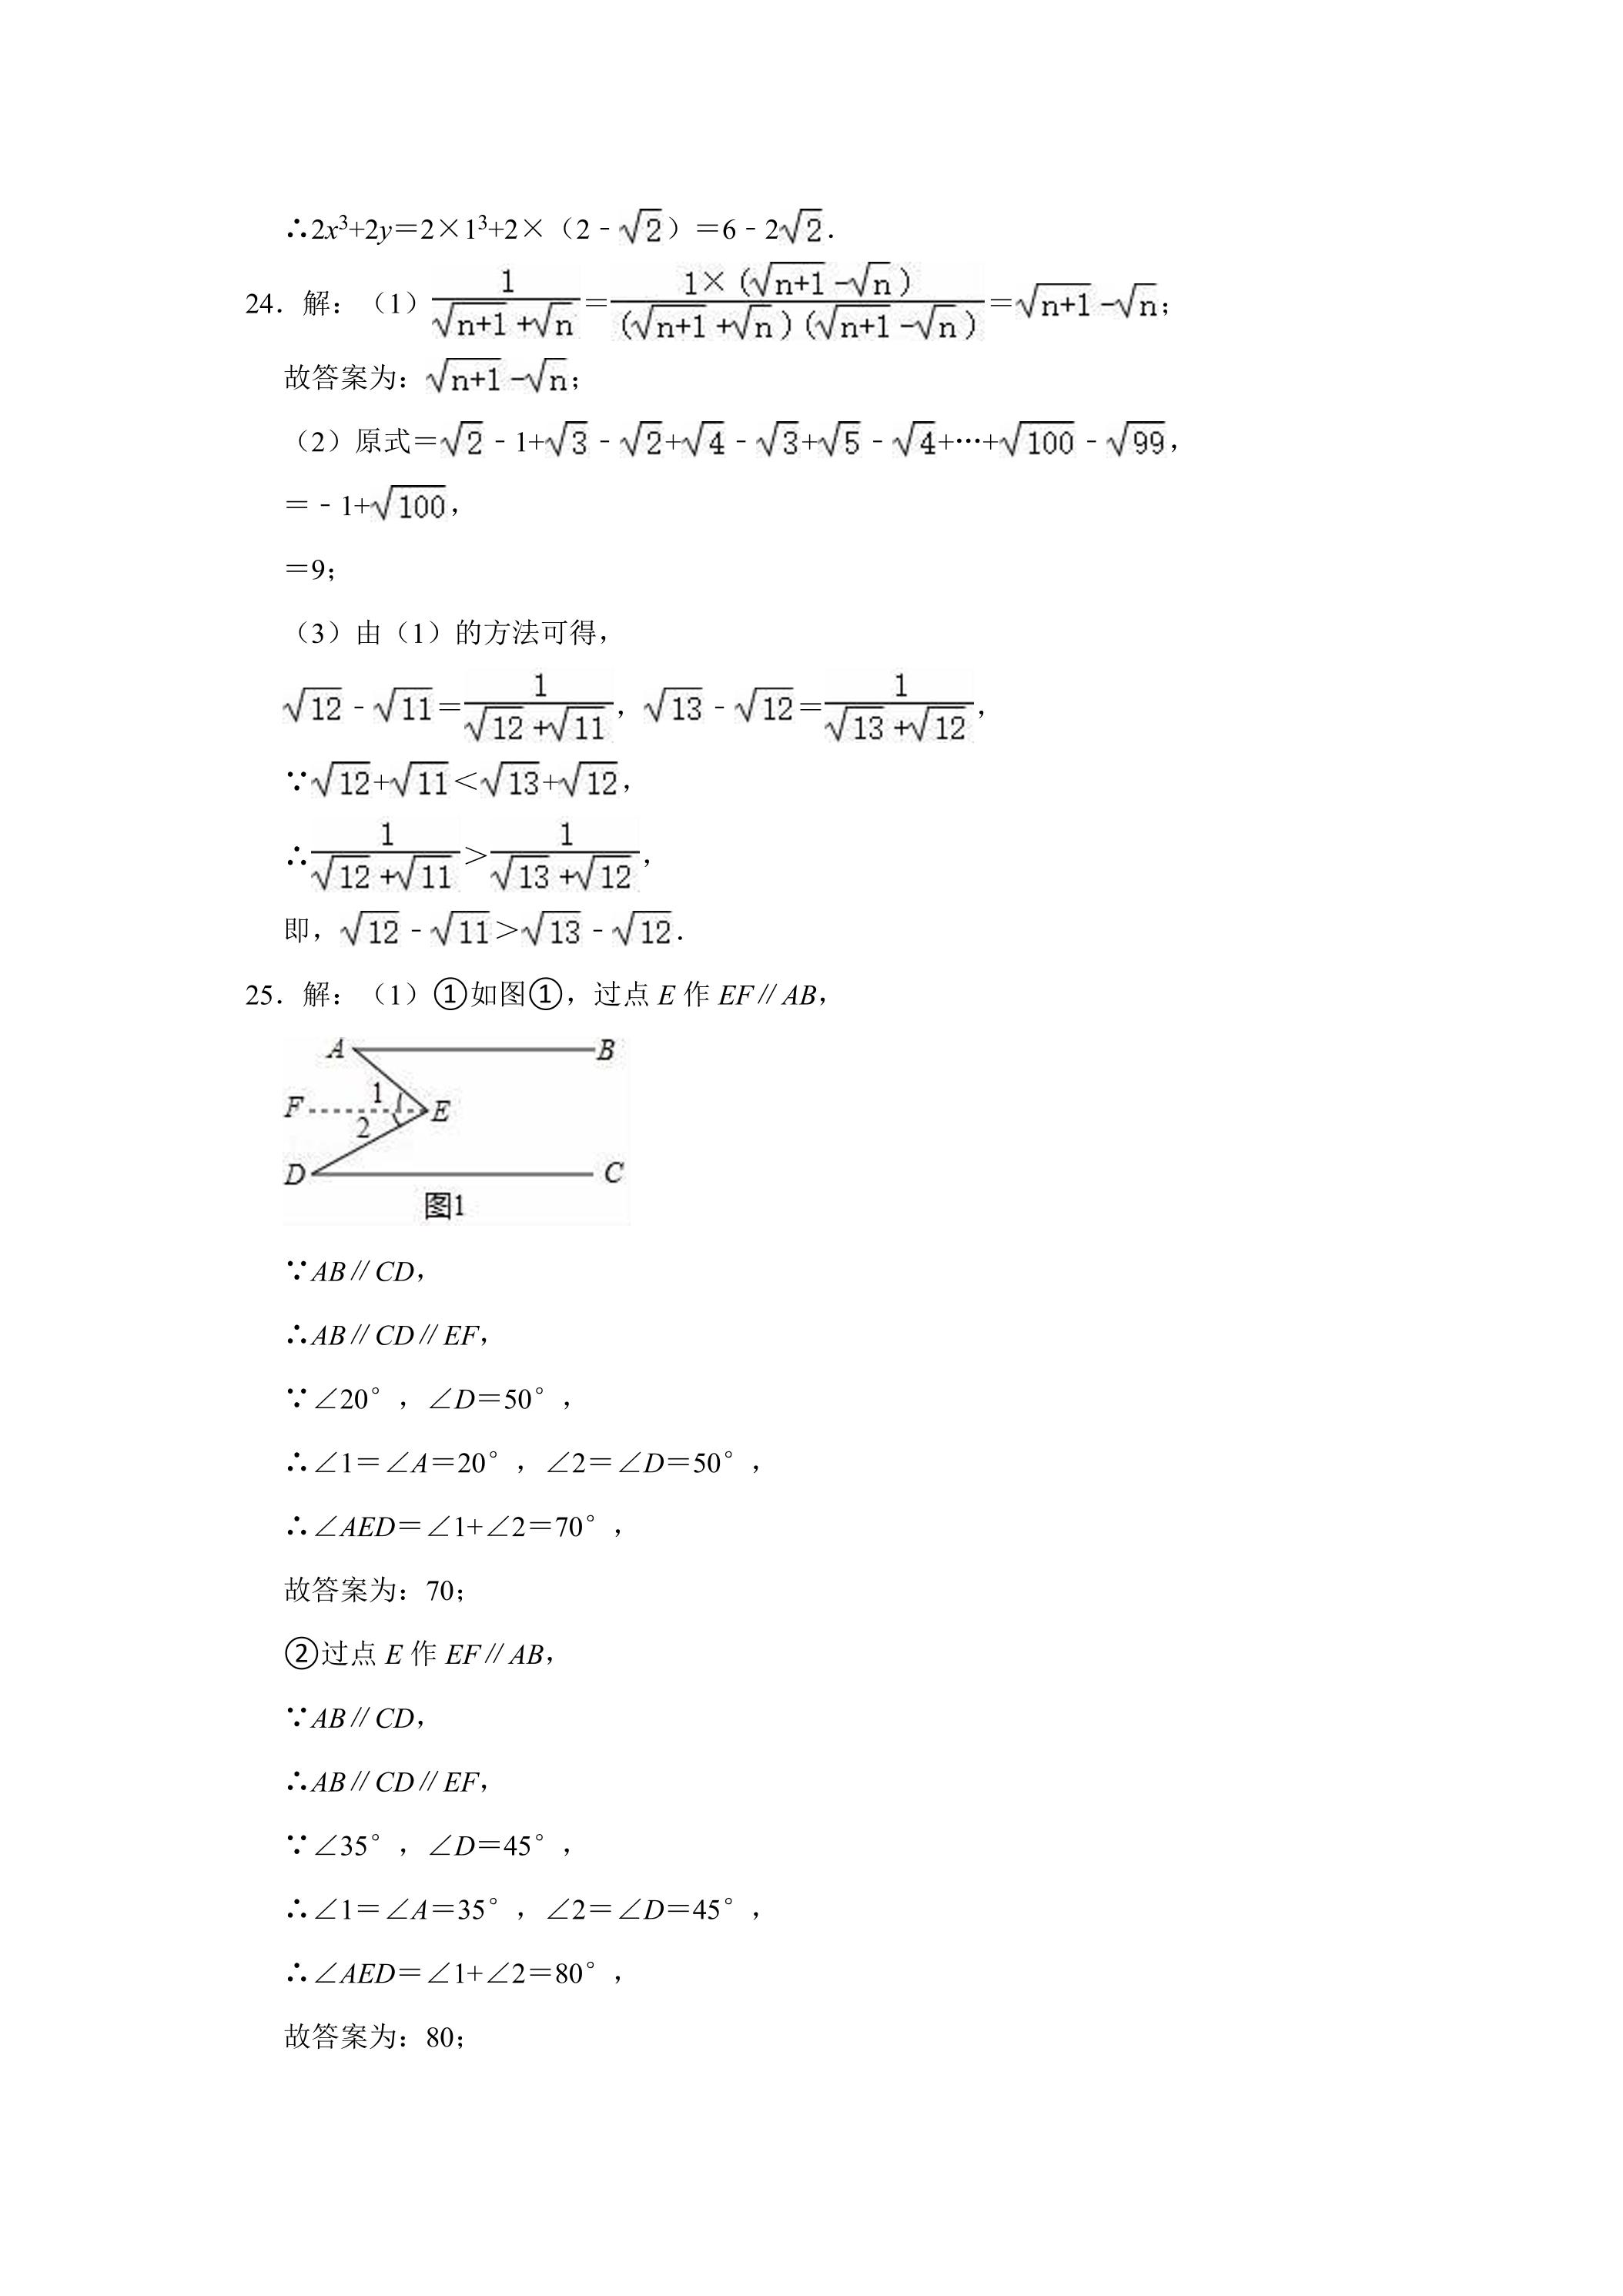 ∴2x³+2y=2×1³+2×（2﹣√2）=6﹣2√2．
24．解：（1）1/(√(n+1)+√n)=1×(√(n+1)-√n)/((√(n+1)+√n)(√(n+1)-√n))=√(n+1)-√n；
故答案为：√(n+1)-√n；
（2）原式=√2﹣1+√3﹣√2+√4﹣√3+√5﹣√4+…+√100﹣√99，
=﹣1+√100，
=9；
（3）由（1）的方法可得，
√12﹣√11=1/(√12+√11)，√13﹣√12=1/(√13+√12)，
∵√12+√11＜√13+√12，
∴1/(√12+√11)＞1/(√13+√12)，
即，√12﹣√11＞√13﹣√12．
25．解：（1）①如图①，过点E作EF∥AB，
A B
1
F E
2
D C
图1
∵AB∥CD，
∴AB∥CD∥EF，
∵∠20°，∠D=50°，
∴∠1=∠A=20°，∠2=∠D=50°，
∴∠AED=∠1+∠2=70°，
故答案为：70；
②过点E作EF∥AB，
∵AB∥CD，
∴AB∥CD∥EF，
∵∠35°，∠D=45°，
∴∠1=∠A=35°，∠2=∠D=45°，
∴∠AED=∠1+∠2=80°，
故答案为：80；